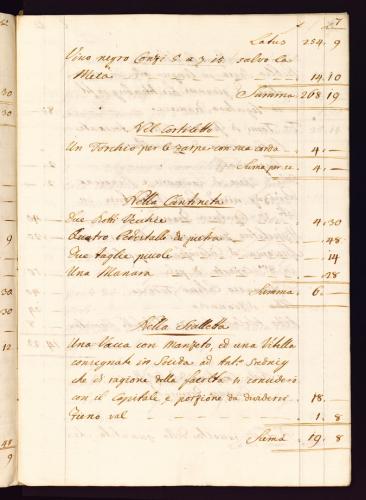 7
Latus 254. 9
Vino negro Conzi 5 a 7 15 salvo la
Metà 14. 10
Summa 268 19
Nel Cortiletto
Un Torchio per le zarpe con sua corda 4. —
Suma per se 4. —
Nella Cantineta
due Botti Vecchie 4. 30
Quatro Pedestallo di pietra — . 48
due taglie picole — 14
Una Manara — . 28
Summa 6. —
Nella Stalletta
Una Vacca con Manzeto, ed una Vitella
consegnate in Socida ad Ant.º
che a ragione della si considerò
con il Capitale e porzione da dividersi 18. —
Fieno val — 1. 8
Sumà 19. 8
30
9
30
30
12
48
9